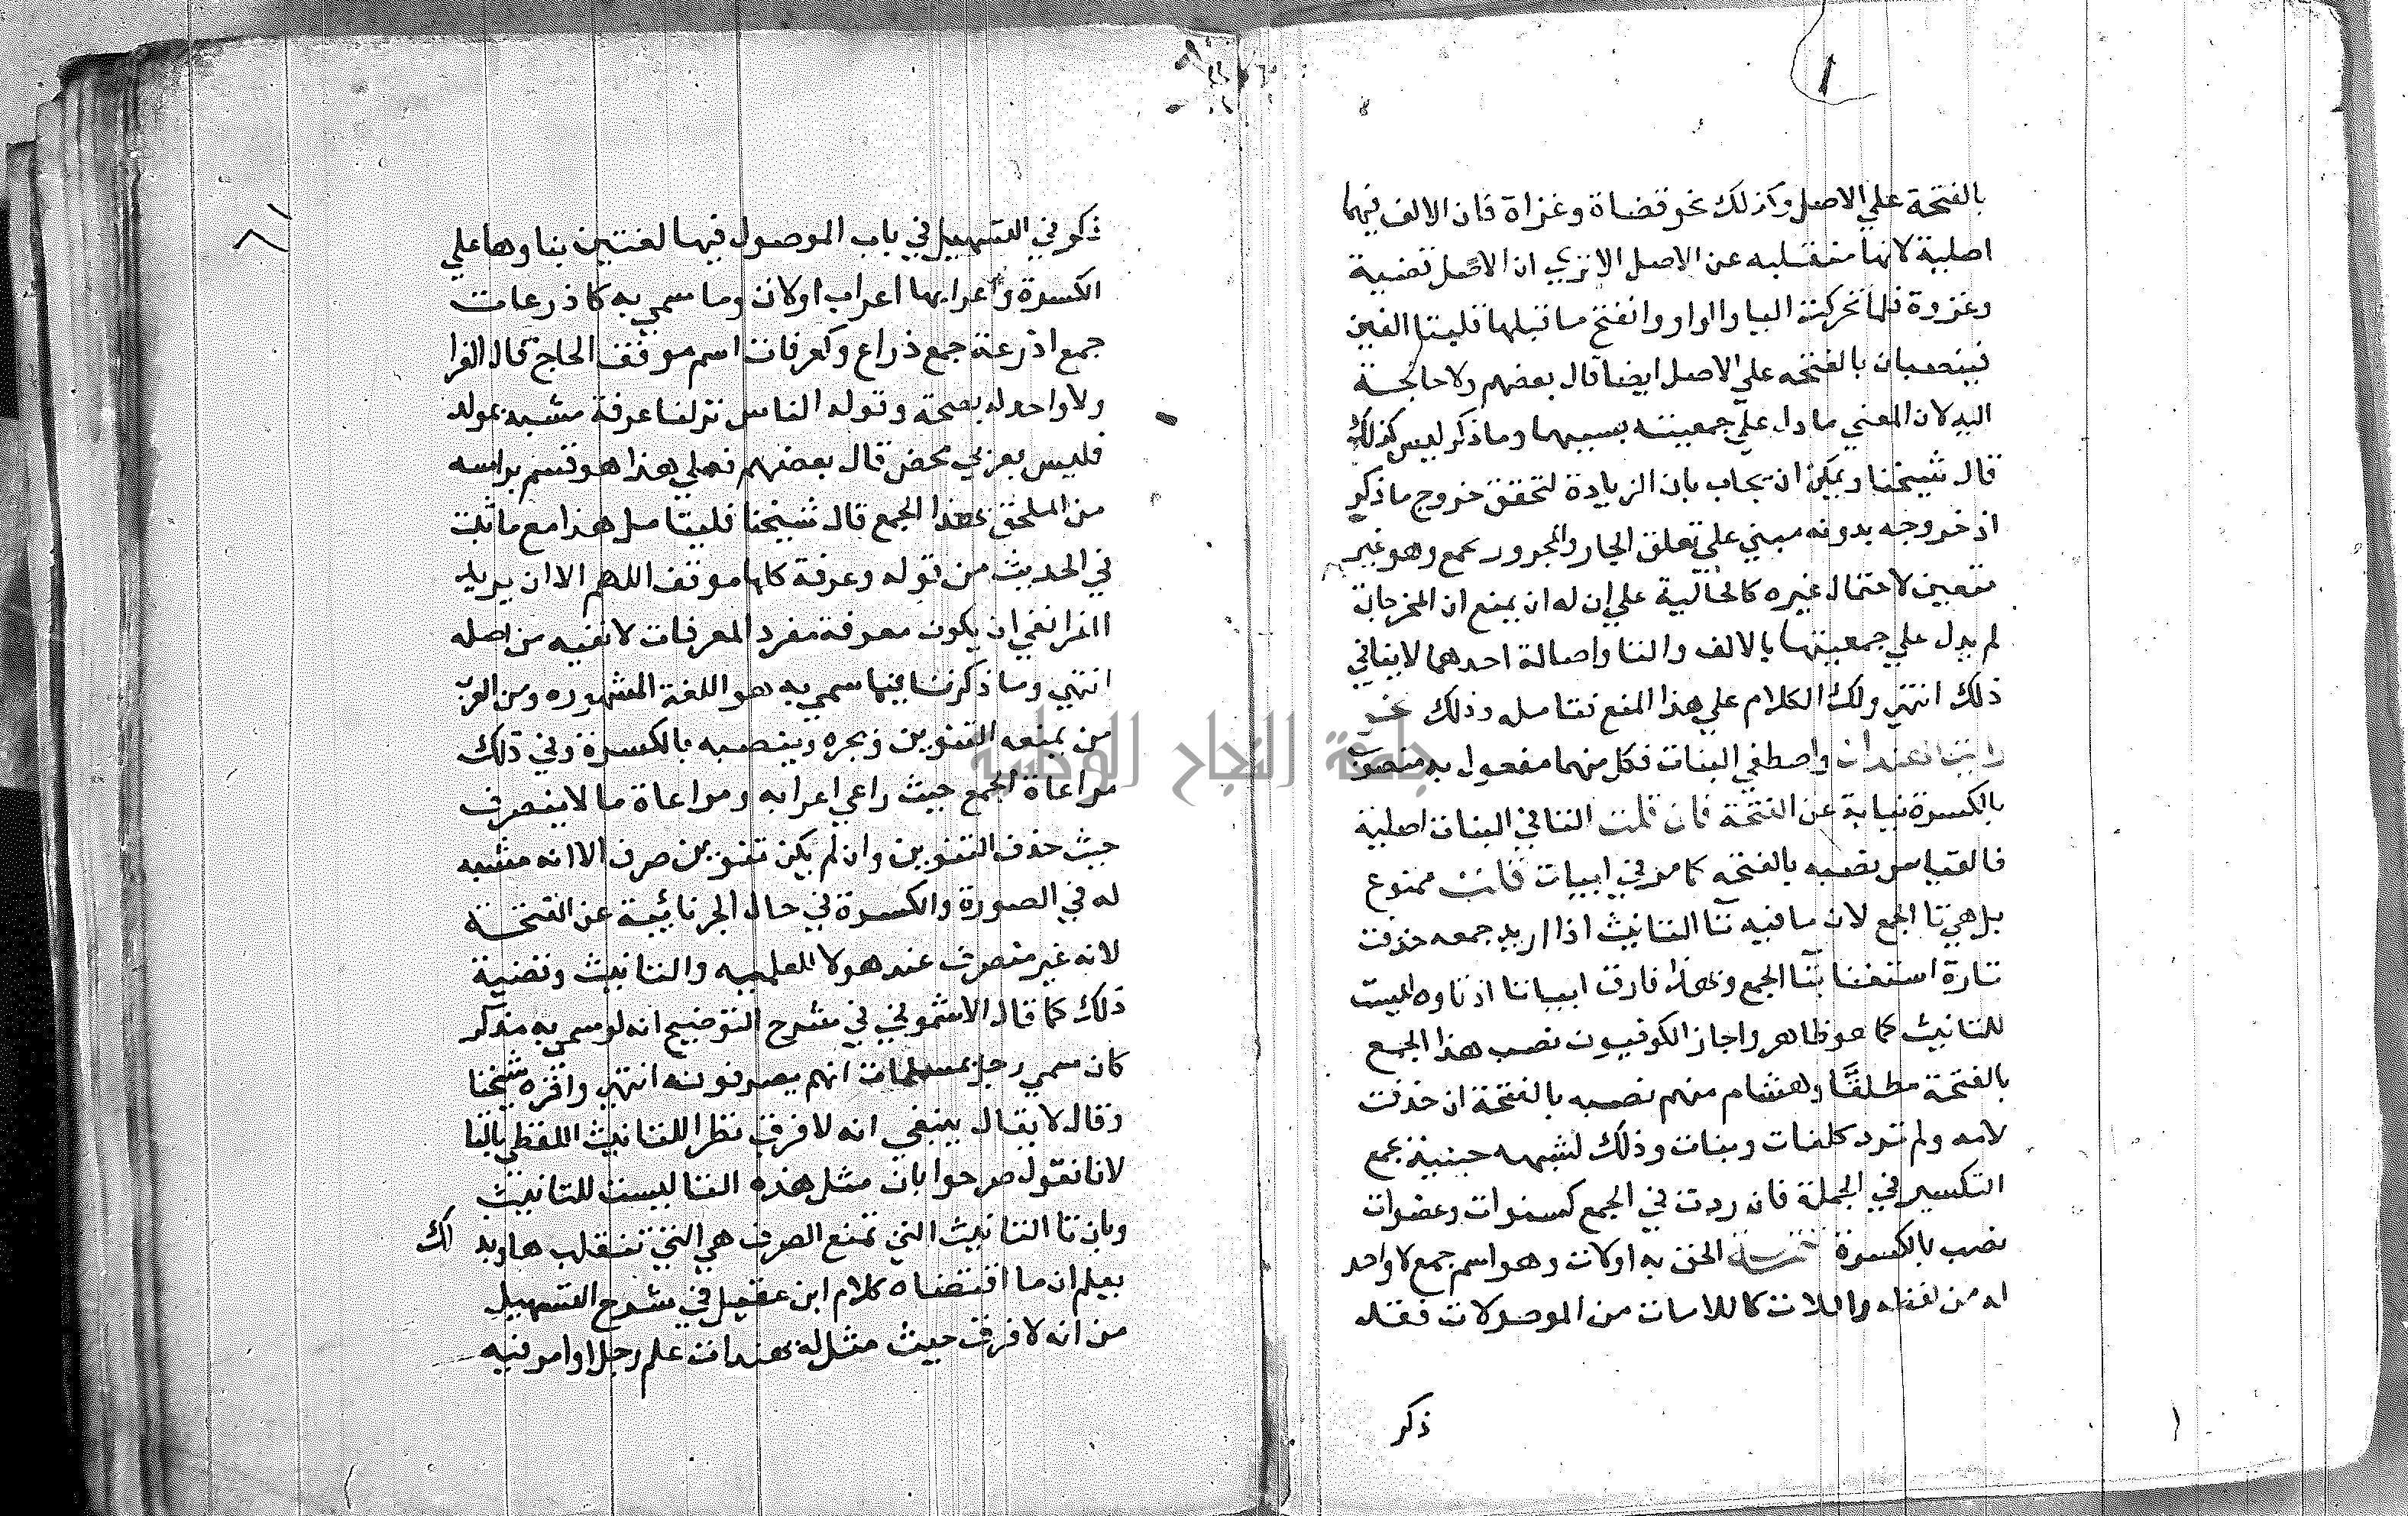 بالفتحة علي الاصل وكذلك نحو قضاة وغزاة فان الالف فيهما
اصلية لانها منقلبه عن الاصل الا تري ان الاصل قضية
وغزوة فلما تحركت اليا والواو وانفتح ما قبلها قلبتا الفين
فينصبان بالفتحه علي الاصل ايضا قال بعضهم ولا حاجة
اليه لان المعني ما دل علي جمعيته بسببهما وما ذكر ليس كذلك
قال شيخنا ويمكن ان يجاب بان الزيادة لتحقق خروج ما ذكر
اذ خروجه بدونه مبني علي تعلق الجار والمجرور بجمع وهو غير
متعين لاحتمال غيره كالحالية علي ان له ان يمنع ان المخرجان
لم يدل علي جمعيتها بالالف والتا واصالة احدهما لا ينافي
ذلك انتهي ولك الكلام علي هذا المنع نتامله وذلك نحو
رايت الهندات واصطفي البنات فكل منهما مفعول به منصوب
بالكسرة نيابة عن الفتحة فان قلت التا في البنات اصلية
فالقياس نصبه بالفتحه كما مر في ابيات قلت ممنوع
بل هي تا الجمع لان ما فيه تا التانيث اذا اريد جمعه حذفت
تارة استغنا بتا الجمع وبهذا فارق ابياتا اذ تاوه ليست
للتانيث كما هو ظاهر واجاز الكوفيون نصب هذا الجمع
بالفتحة مطلقا وهشام منهم نصبه بالفتحة ان حذفت
لامه ولم ترد كلغات وبنات وذلك لشبهه حينية بجمع
التكسير في الجملة فان ردت في الجمع كسنوات وعضوات
نصب بالكسرة الحق به اولات وهو اسم جمع لا واحد
له من لفظه واللات كاللاسات من الموصولات فقد
ذكر
ذكر في التسهيل في باب الموصول فيها لغتين بناوها علي
الكسرة واعرابها اعراب اولات وما سمي به كاذرعات
جمع اذرعة جمع ذراع وكعرفات اسم موقف الحاج قال الفرا
ولا واحد له بصحة وقوله الناس نزلنا عرفة مشبه بمولد
فليس بعربي محض قال بعضهم فعلي هذا هو قسم براسه
من الملحق بهذا الجمع قال شيخنا فليتامل هذا مع ما ثبت
في الحديث من قوله وعرفة كلها موقف اللهم الا ان يريد
الفرا نفي ان يكون معرفة مفرد المعرفات لا نفيه من اصله
انتهي وما ذكرنا فيما سمي به هو اللغة المشهوره ومن العرب
من يمنعه التنوين ويجره وينصبه بالكسرة وفي ذلك
مراعاة الجمع حيث راعي اعرابه ومراعاة ما لا ينصرف
حيث حذف التنوين وان لم يكن تنوين صرف الا انه مشبه
له في الصورة والكسرة في حال الجر نائبة عن الفتحة
لانه غير منصرف عند هولا للعلميه والتانيث وقضية
ذلك كما قال الاشموني في شرح التوضيح انه لو سمي به مذكر
كان سمي رجل بمسلمات انهم يصرفونه انتهي واقره شيخنا
وقال لا يقال ينبغي انه لا فرق نظر اللتانيث اللفظي بالتا
لانا نقول صرحوا بان مثل هذه التا ليست للتانيث
وبان تا التانيث التي تمنع الصرف هي التي تنقلب ها وبذلك
يعلم ان ما اقتضاه كلام ابن عقيل في شرح التسهيل
من انه لا فرق حيث مثل له بهندات علم رجل او امر فيه
جامعة النجاح الوطنية